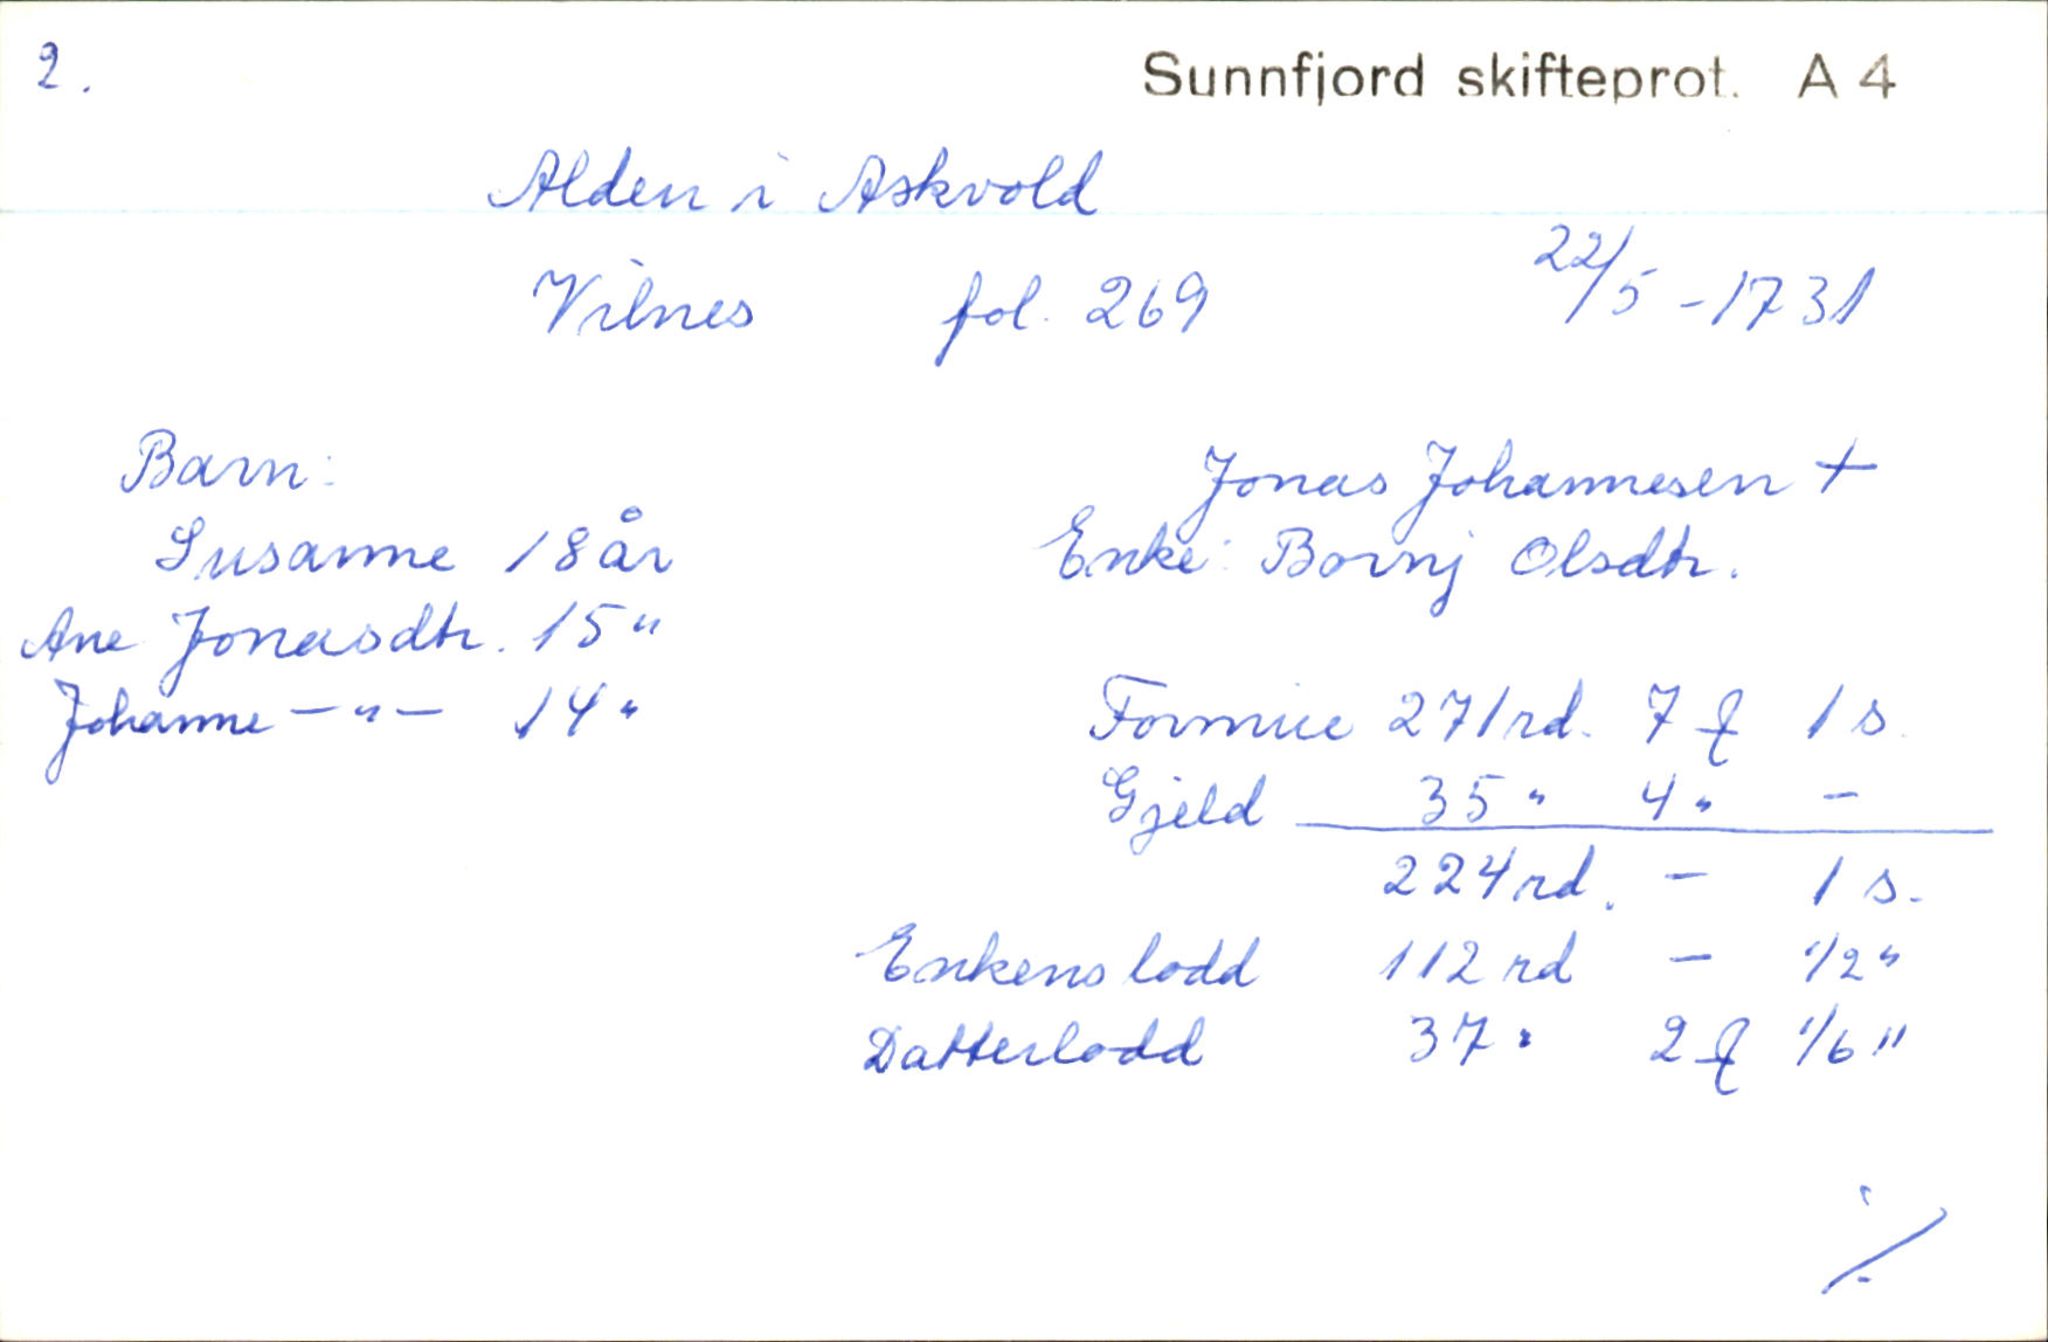 2.
Sunnfjord skifteprot. A 4
Alden i Askvold
Vilnes fol. 269 22/5 - 1731
Barn:
Susanne 18 år
Ane Jonasdtr. 15 "
Johanne - " - 14 "
Jonas Johannesen +
Enke: Bornj Olsdtr.
Formue 271 rd. 7 ƒ 1 s.
Gjeld 35 " 4 " -
224 rd. - 1 s.
Enkens lodd 112 rd - 1/2 "
Datterlodd 37 " 2 ƒ 1/6 "
./.